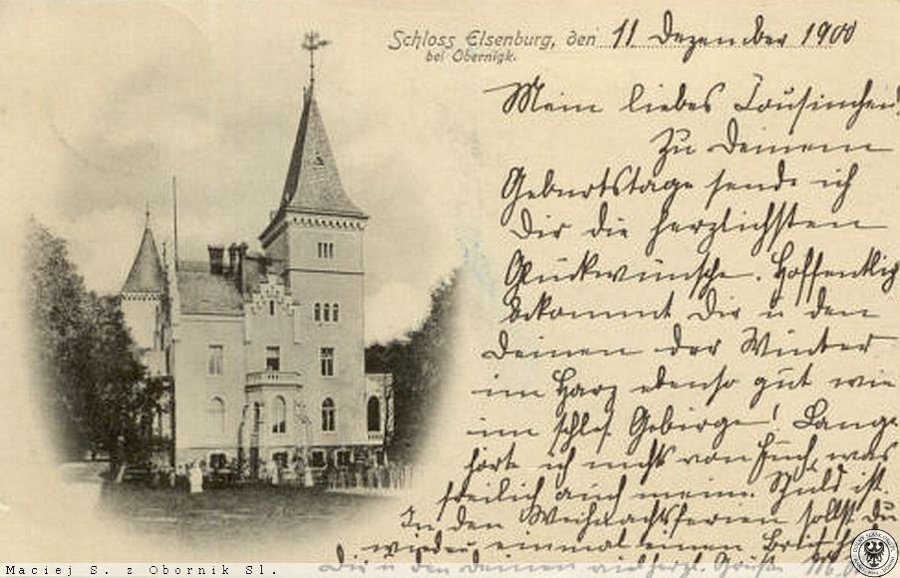 Schloss Elsenburg, den 11 Dezember 1900
bei Obernigk.
Mein liebes Cousinchen!
Zu Deinem
Geburtstage sende ich
Dir die herzlichsten
Glückwünsche. Hoffentlich
bekommt Dir u den
Deinen der Winter
im Harz ebenso gut wie
im schles. Gebirge! Lange
hörte ich nichts von Euch, was
freilich auch meine Schuld ist.
In den Weihnachtsferien sollst du
wieder einmal einen Brief
Dir u den Deinen viel herzl. Grüße
Maciej S. z Obornik Sl.